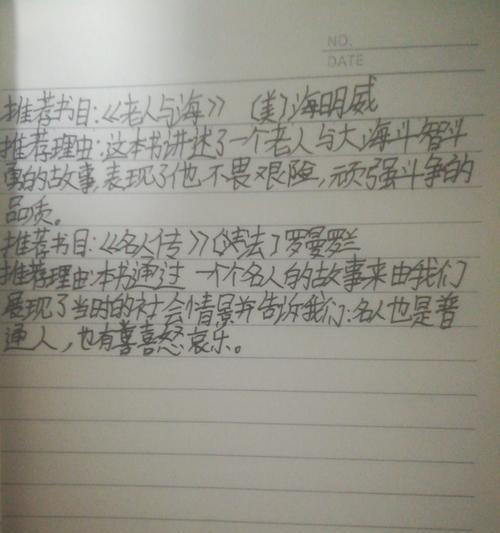 NO.
DATE
推荐书目:《老人与海》 (美)海明威
推荐理由:这本书讲述了一个老人与大海斗智斗
勇的故事,表现了他不畏艰险,顽强斗争的
品质。
推荐书目:《名人传》(法)罗曼罗兰
推荐理由:本书通过一个个名人的故事来由我们
展现了当时的社会情景并告诉我们:名人也是普
通人,也有喜怒哀乐。